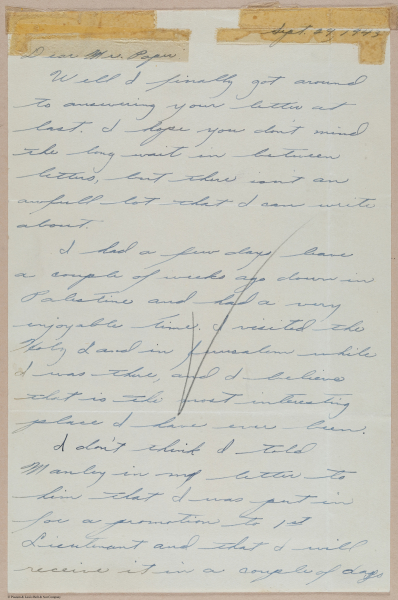 Sept. 29, 194
Dear Mr. Pape
Well I finally got around
to answering your letter at
last. I hope you don't mind
the long wait in between
letters, but there isn't an
awfull lot that I can write
about.
I had a few days leave
a couple of weeks ago down in
Palestine and had a very
enjoyable time. I visited the
Holy Land in Jerusalem while
I was there, and I believe
that is the most interesting
place I have ever been.
I don't think I told
Manley in my letter to
him that I was put in
for a promotion to 1st
Lieutenant and that I will
receive it in a couple of days